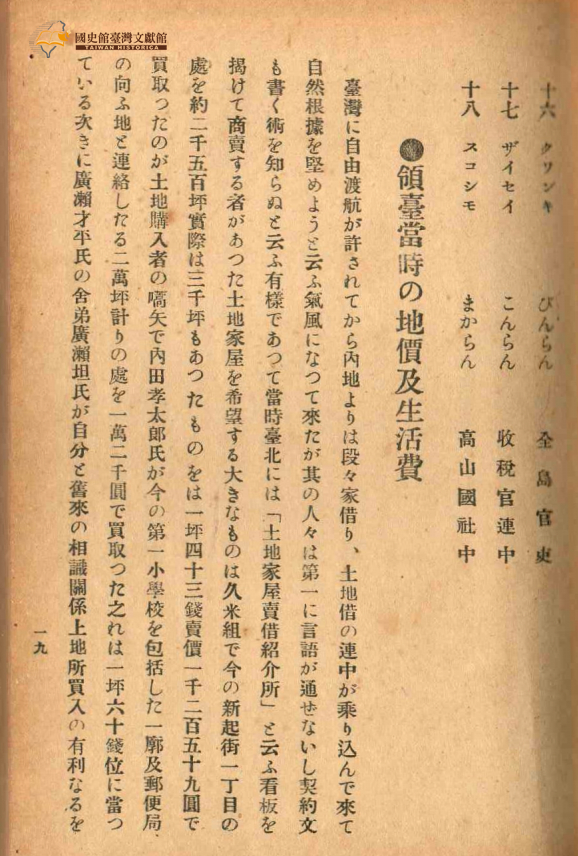 國史館臺灣文獻館
TAIWAN HISTORICA
十六 クソンキ びんらん 全島官吏
十七 ザイセイ こんらん 收稅官連中
十八 スコシモ まからん 高山國社中
●領臺當時の地價及生活費
臺灣に自由渡航が許されてから內地よりは段々家借り、土地借の連中が乘り込んで來て
自然根據を堅めようと云ふ氣風になつて來たが其の人々は第一に言語が通せないし契約文
も書く術を知らぬと云ふ有樣であつて當時臺北には「土地家屋賣借紹介所」と云ふ看板を
揭けて商賣する者があつた土地家屋を希望する大きなものは久米組で今の新起街一丁目の
處を約二千五百坪實際は三千坪もあつたものをは一坪四十三錢賣價一千二百五十九圓で
買取つたのが土地購入者の嚆矢で內田孝太郎氏が今の第一小學校を包括した一廓及郵便局
の向ふ地と連絡したる二萬坪計りの處を一萬二千圓で買取つた之れは一坪六十錢位に當つ
ている次きに廣瀨才平氏の舍弟廣瀨坦氏が自分と舊來の相識關係上地所買入の有利なるを
一九